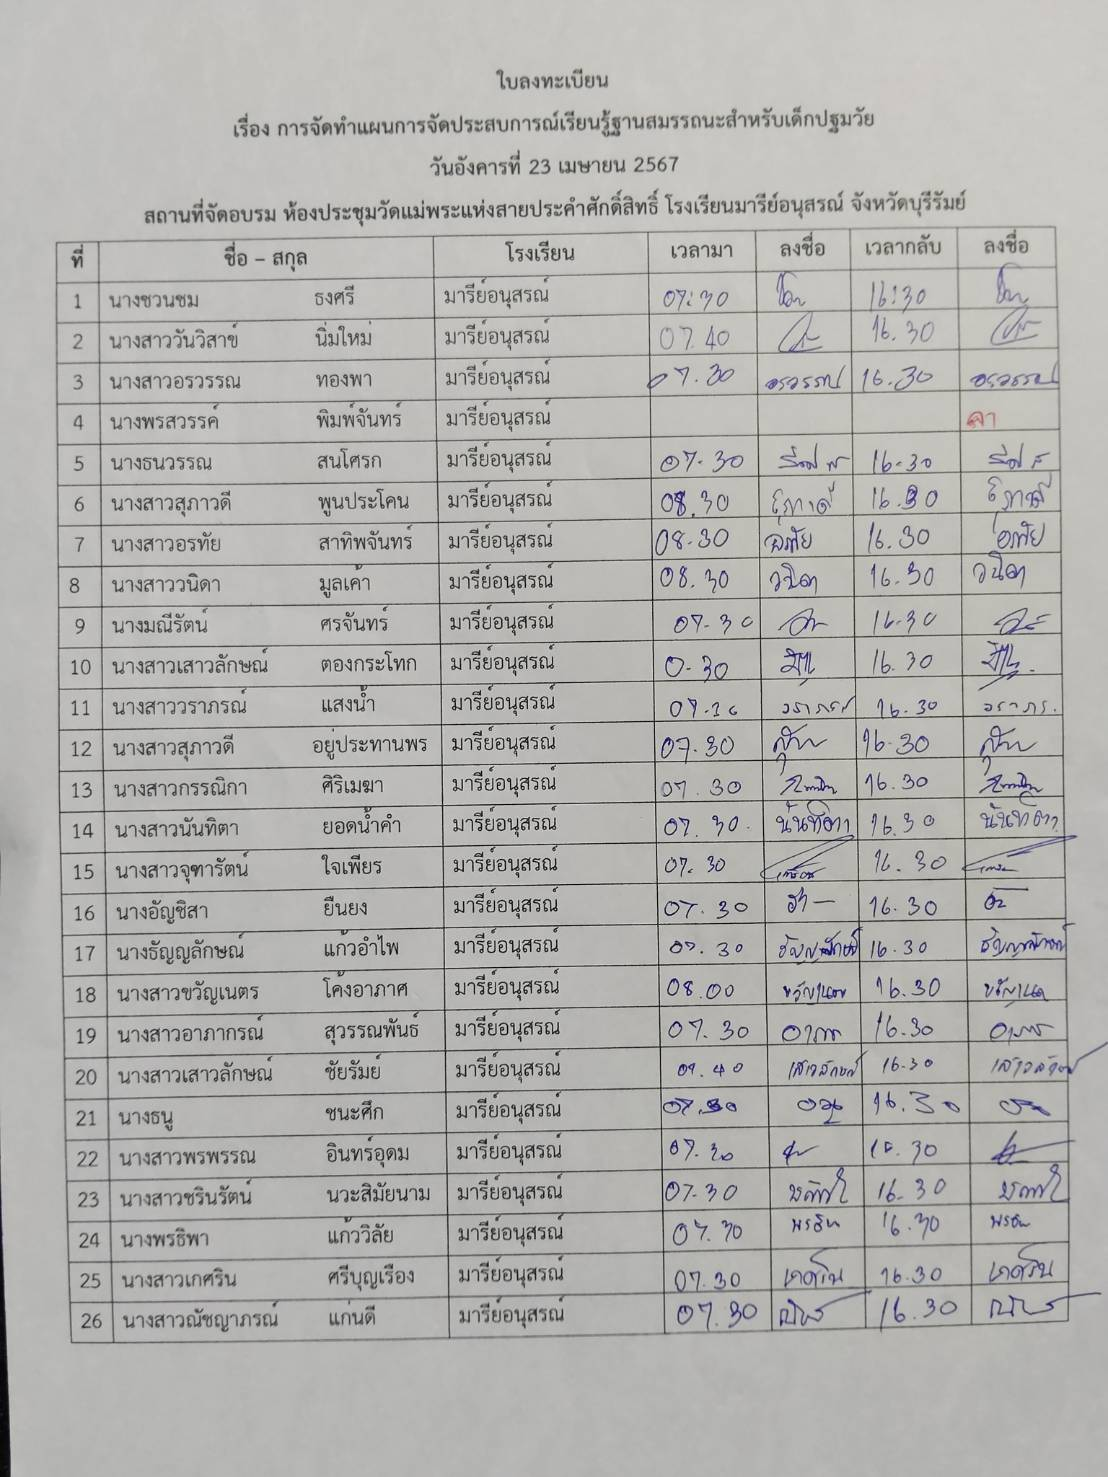 ใบลงทะเบียน
เรื่อง การจัดทำแผนการจัดประสบการณ์เรียนรู้ฐานสมรรถนะสำหรับเด็กปฐมวัย
วันอังคารที่ 23 เมษายน 2567
สถานที่จัดอบรม ห้องประชุมวัดแม่พระแห่งสายประคำศักดิ์สิทธิ์ โรงเรียนมารีย์อนุสรณ์ จังหวัดบุรีรัมย์
ที่ ชื่อ – สกุล โรงเรียน เวลามา ลงชื่อ เวลากลับ ลงชื่อ
1 นางชวนชม ธงศรี มารีย์อนุสรณ์ 07:30 16:30
2 นางสาววันวิสาข์ นิ่มใหม่ มารีย์อนุสรณ์ 07.40 16.30
3 นางสาวอรวรรณ ทองพา มารีย์อนุสรณ์ 07.30 อรวรรณ 16.30 อรวรรณ
4 นางพรสวรรค์ พิมพ์จันทร์ มารีย์อนุสรณ์ ลา
5 นางธนวรรณ สนโศรก มารีย์อนุสรณ์ 07.30 16.30
6 นางสาวสุภาวดี พูนประโคน มารีย์อนุสรณ์ 08.30 16.30
7 นางสาวอรทัย สาทิพจันทร์ มารีย์อนุสรณ์ 08.30 อรทัย 16.30 อรทัย
8 นางสาววนิดา มูลเค้า มารีย์อนุสรณ์ 08.30 วนิดา 16.30 วนิดา
9 นางมณีรัตน์ ศรจันทร์ มารีย์อนุสรณ์ 07.30 16.30
10 นางสาวเสาวลักษณ์ ตองกระโทก มารีย์อนุสรณ์ 0.30 16.30
11 นางสาววราภรณ์ แสงน้ำ มารีย์อนุสรณ์ 07.30 วราภรณ์ 16.30
12 นางสาวสุภาวดี อยู่ประทานพร มารีย์อนุสรณ์ 07.30 16.30
13 นางสาวกรรณิกา ศิริเมฆา มารีย์อนุสรณ์ 07.30 16.30
14 นางสาวนันทิตา ยอดน้ำคำ มารีย์อนุสรณ์ 07.30 นันทิตา 16.30 นันทิตา
15 นางสาวจุฑารัตน์ ใจเพียร มารีย์อนุสรณ์ 07.30 16.30
16 นางอัญชิสา ยืนยง มารีย์อนุสรณ์ 07.30 16.30
17 นางธัญญลักษณ์ แก้วอำไพ มารีย์อนุสรณ์ 07.30 ธัญญลักษณ์ 16.30 ธัญญลักษณ์
18 นางสาวขวัญเนตร โค้งอาภาศ มารีย์อนุสรณ์ 08.00 ขวัญเนตร 16.30 ขวัญเนตร
19 นางสาวอาภากรณ์ สุวรรณพันธ์ มารีย์อนุสรณ์ 07.30 16.30
20 นางสาวเสาวลักษณ์ ชัยรัมย์ มารีย์อนุสรณ์ 07.40 เสาวลักษณ์ 16.30 เสาวลักษณ์
21 นางธนู ชนะศึก มารีย์อนุสรณ์ 07.30 16.30
22 นางสาวพรพรรณ อินทร์อุดม มารีย์อนุสรณ์ 07.30 16.30
23 นางสาวชรินรัตน์ นวะสิมัยนาม มารีย์อนุสรณ์ 07.30 16.30
24 นางพรธิพา แก้ววิลัย มารีย์อนุสรณ์ 07.30 16.30
25 นางสาวเกศริน ศรีบุญเรือง มารีย์อนุสรณ์ 07.30 เกศริน 16.30 เกศริน
26 นางสาวณัชญาภรณ์ แก่นดี มารีย์อนุสรณ์ 07.30 16.30